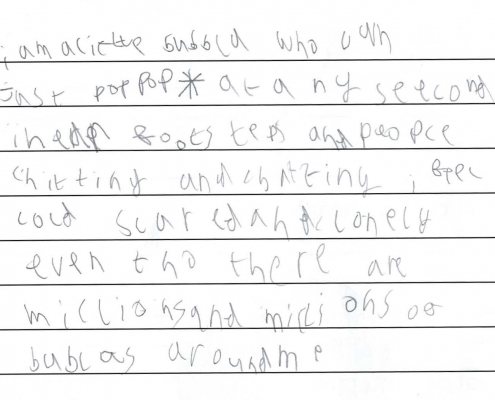 i am a little bubble who can
Just pop pop* at a ny seecond
i hear footsteps and people
chitting and chatting, i feel
cold scared and lonely
even tho there are
millions and millions of
bubles around me